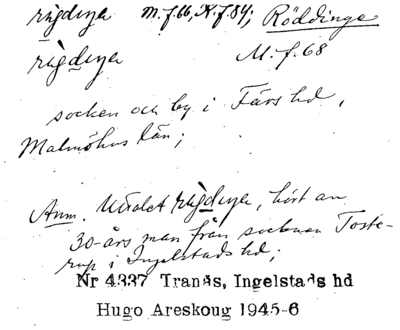 rụgdıŋa M. f. 66, K. f. 84; Röddinge
rụgdıŋa M. f. 68
socken och by i Färs hd,
Malmöhus län;
Anm. Uttalet rụgdıŋa, hört av
30-års man från socknen Toste-
rup i Ingelstads hd;
Nr 4337 Tranås, Ingelstads hd
Hugo Areskoug 1945-6